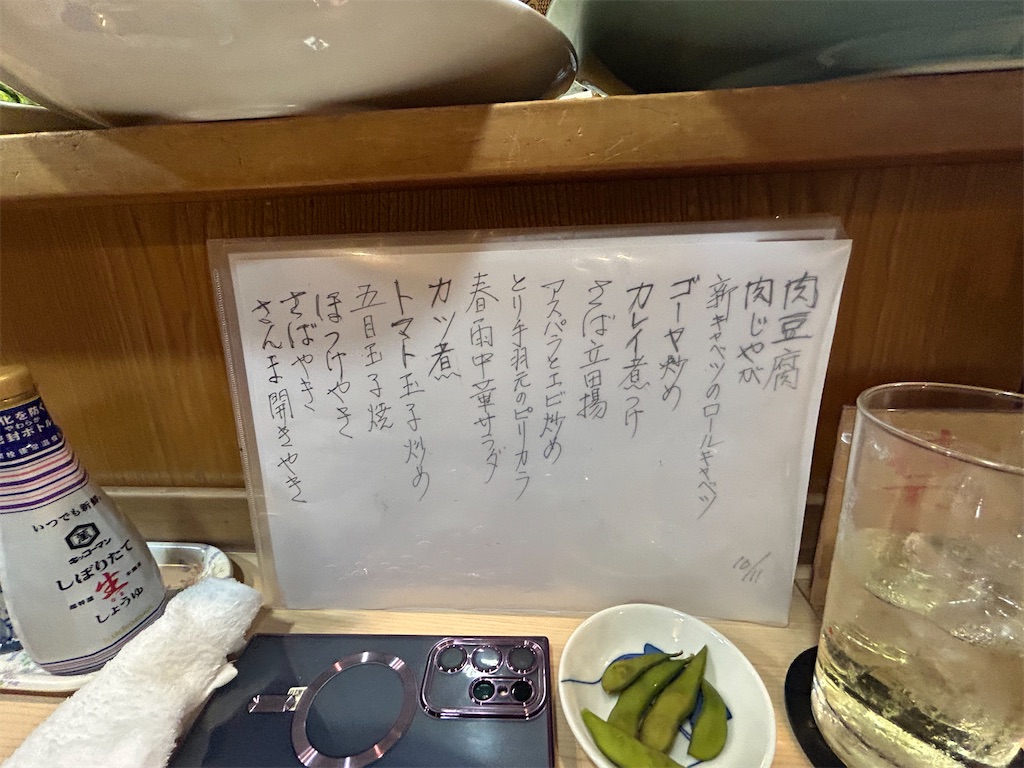 肉豆腐
肉じゃが
新キャベツのロールキャベツ
ゴーヤ炒め
カレイ煮つけ
さば立田揚
アスパラとエビ炒め
とり手羽元のピリカラ
春雨中華サラダ
カツ煮
トマト玉子炒め
五目玉子焼
ほっけやき
さばやき
さんま開きやき
10/11
化を防ぐ
やわらか
密封ボトル
いつでも新鮮
キッコーマン
しぼりたて
生
しょうゆ